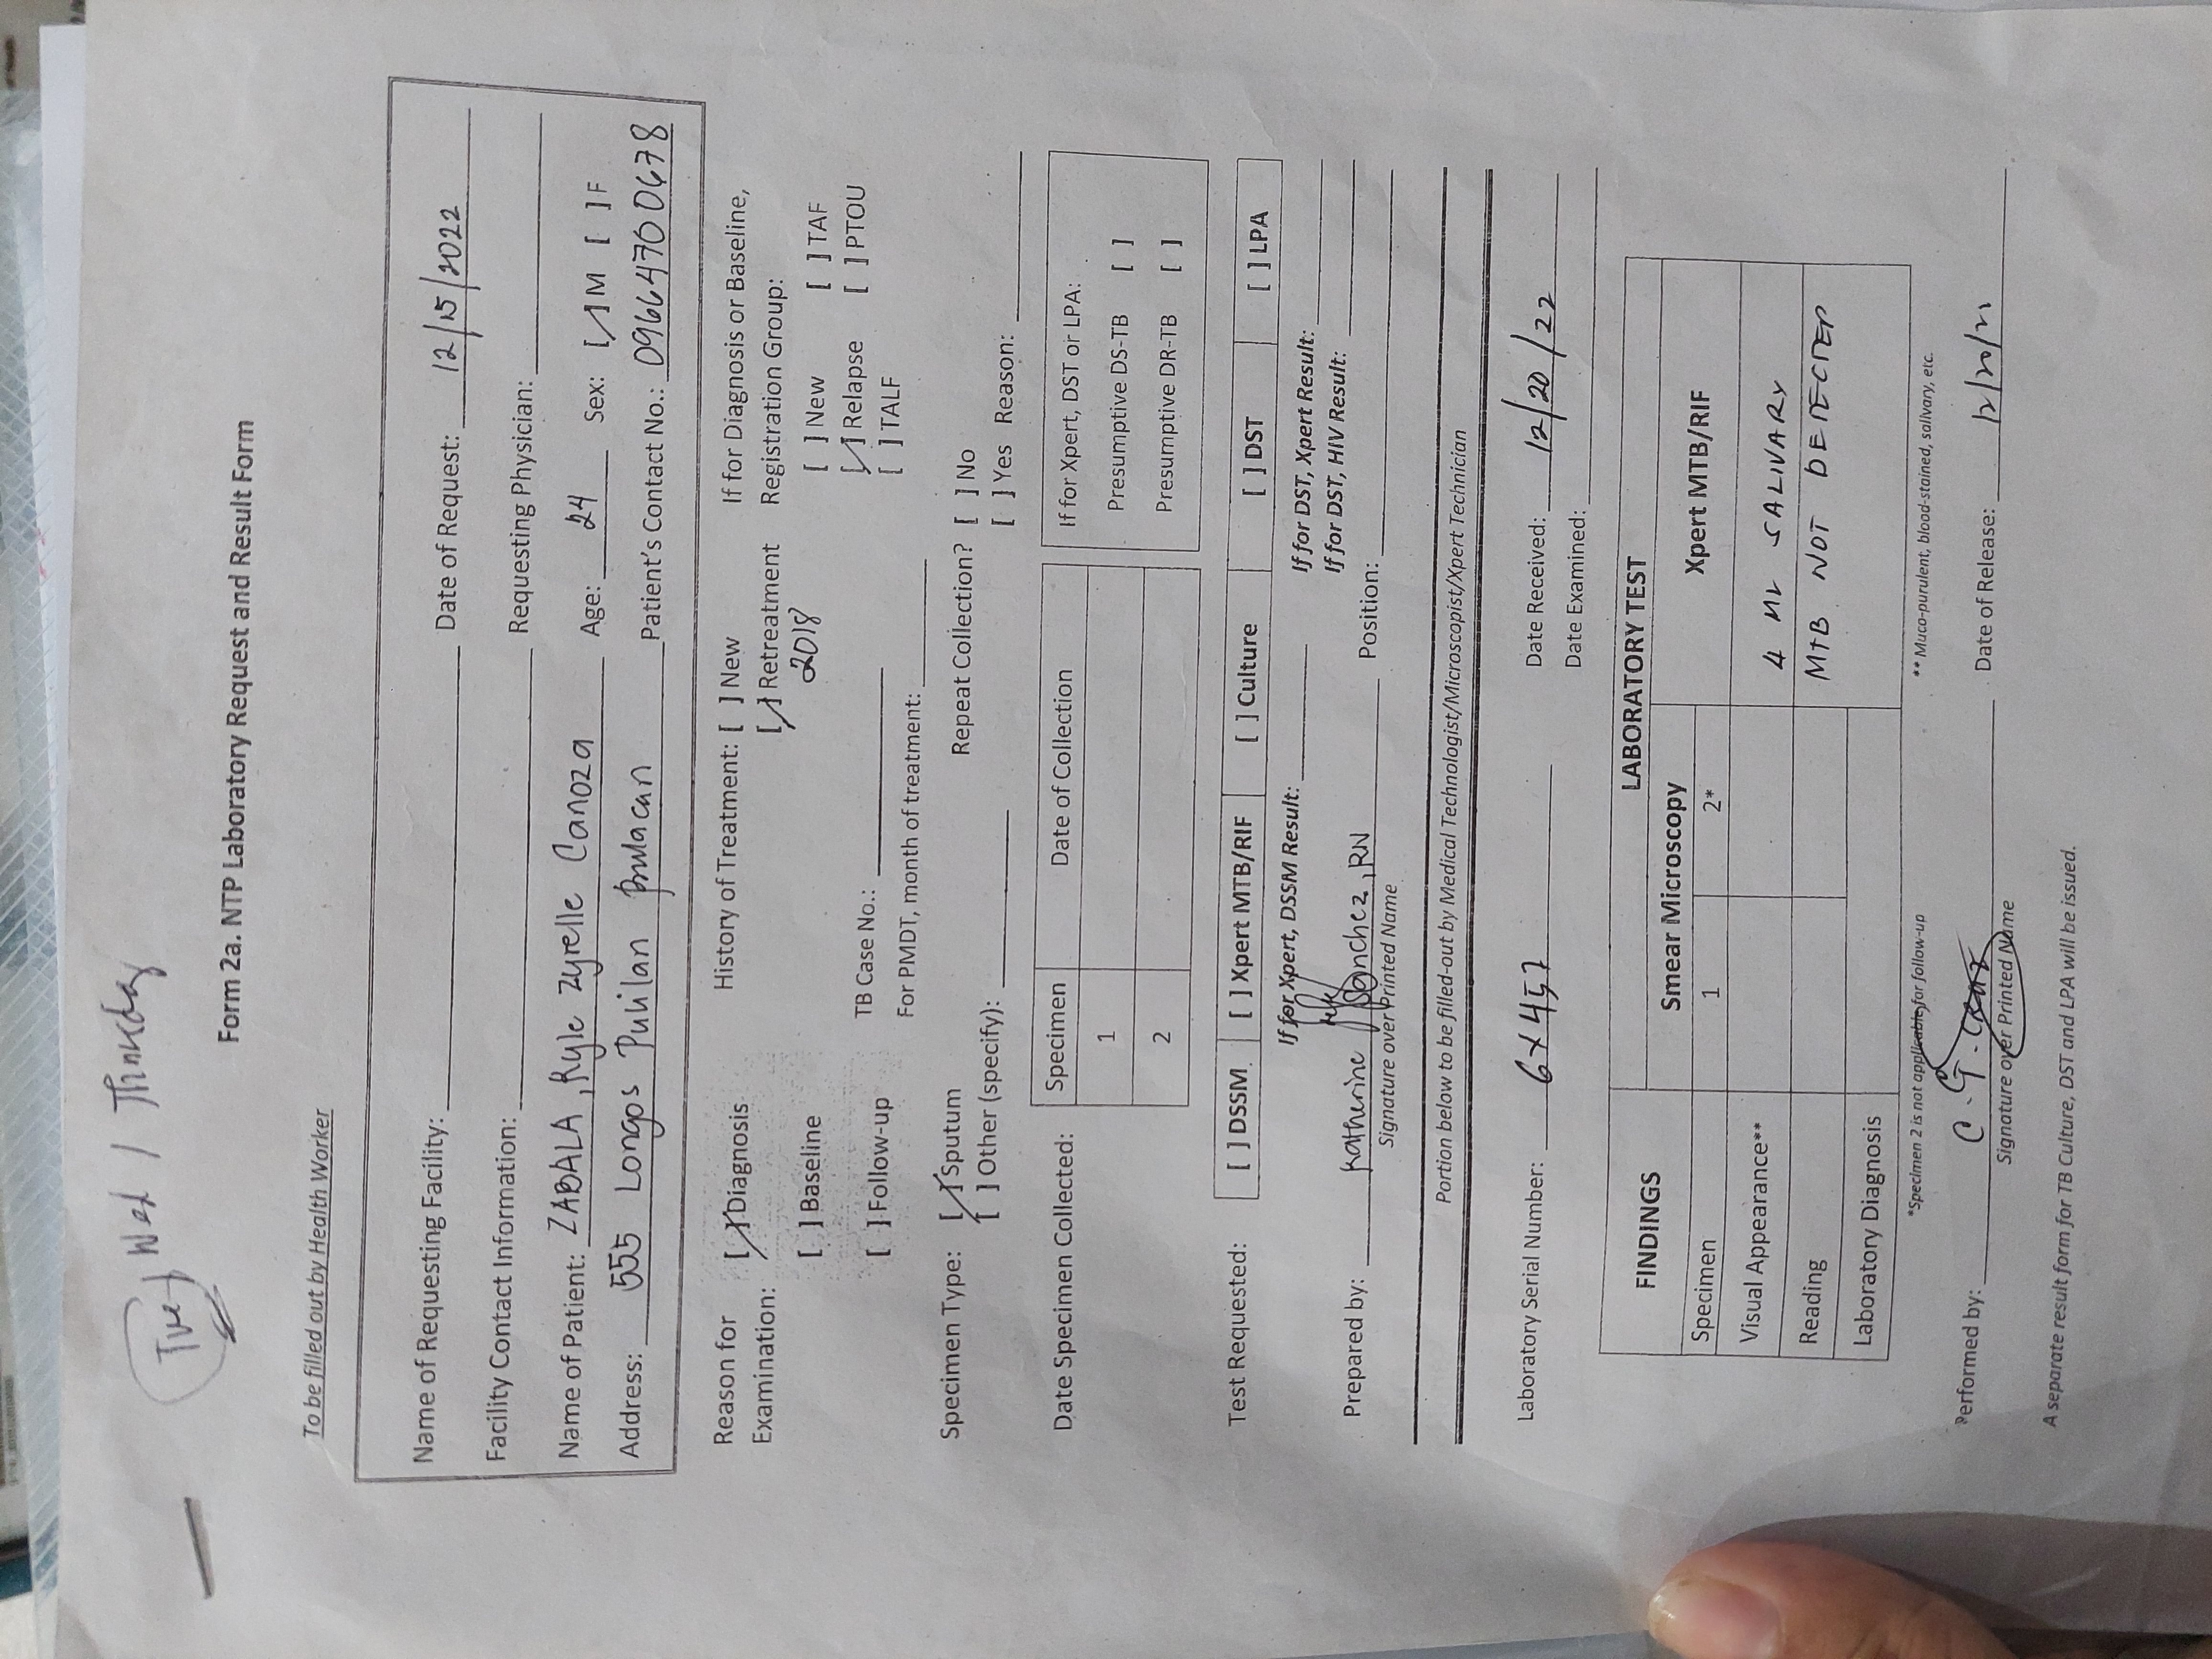 Tues / Wed / Thursday
Form 2a. NTP Laboratory Request and Result Form
To be filled out by Health Worker
Name of Requesting Facility: Date of Request: 12/15/2022
Facility Contact Information: Requesting Physician:
Name of Patient: ZABALA, Kyle Zyrelle Canoza Age: 24 Sex: [/] M [ ] F
Address: 555 Longos Pulilan Bulacan Patient's Contact No.: 09664700678
Reason for Examination: [/] Diagnosis History of Treatment: [ ] New If for Diagnosis or Baseline,
[/] Retreatment Registration Group:
2018
[ ] Baseline [ ] New [ ] TAF
TB Case No.: [/] Relapse [ ] PTOU
[ ] Follow-up [ ] TALF
For PMDT, month of treatment:
Specimen Type: [/] Sputum Repeat Collection? [ ] No
[ ] Other (specify): [ ] Yes Reason:
Date Specimen Collected: Specimen Date of Collection If for Xpert, DST or LPA:
1 Presumptive DS-TB [ ]
2 Presumptive DR-TB [ ]
Test Requested: [ ] DSSM [ ] Xpert MTB/RIF [ ] Culture [ ] DST [ ] LPA
If for Xpert, DSSM Result: If for DST, Xpert Result:
If for DST, HIV Result:
Prepared by: Katherine Sanchez, RN Position:
Signature over Printed Name
Portion below to be filled-out by Medical Technologist/Microscopist/Xpert Technician
Laboratory Serial Number: 6X457 Date Received: 12/20/22
Date Examined:
FINDINGS LABORATORY TEST
Smear Microscopy Xpert MTB/RIF
Specimen 1 2*
Visual Appearance** 4 ML SALIVARY
Reading MTB NOT DETECTED
Laboratory Diagnosis
*Specimen 2 is not applicable for follow-up ** Muco-purulent, blood-stained, salivary, etc.
Performed by: C. G. Cruz Date of Release:
Signature over Printed Name
A separate result form for TB Culture, DST and LPA will be issued.